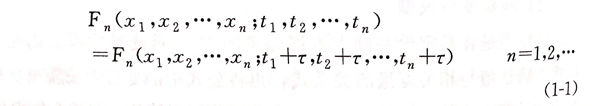 Fₙ(x₁,x₂,⋯,xₙ;t₁,t₂,⋯,tₙ)
=Fₙ(x₁,x₂,⋯,xₙ;t₁+τ,t₂+τ,⋯,tₙ+τ) n=1,2,⋯
(1-1)